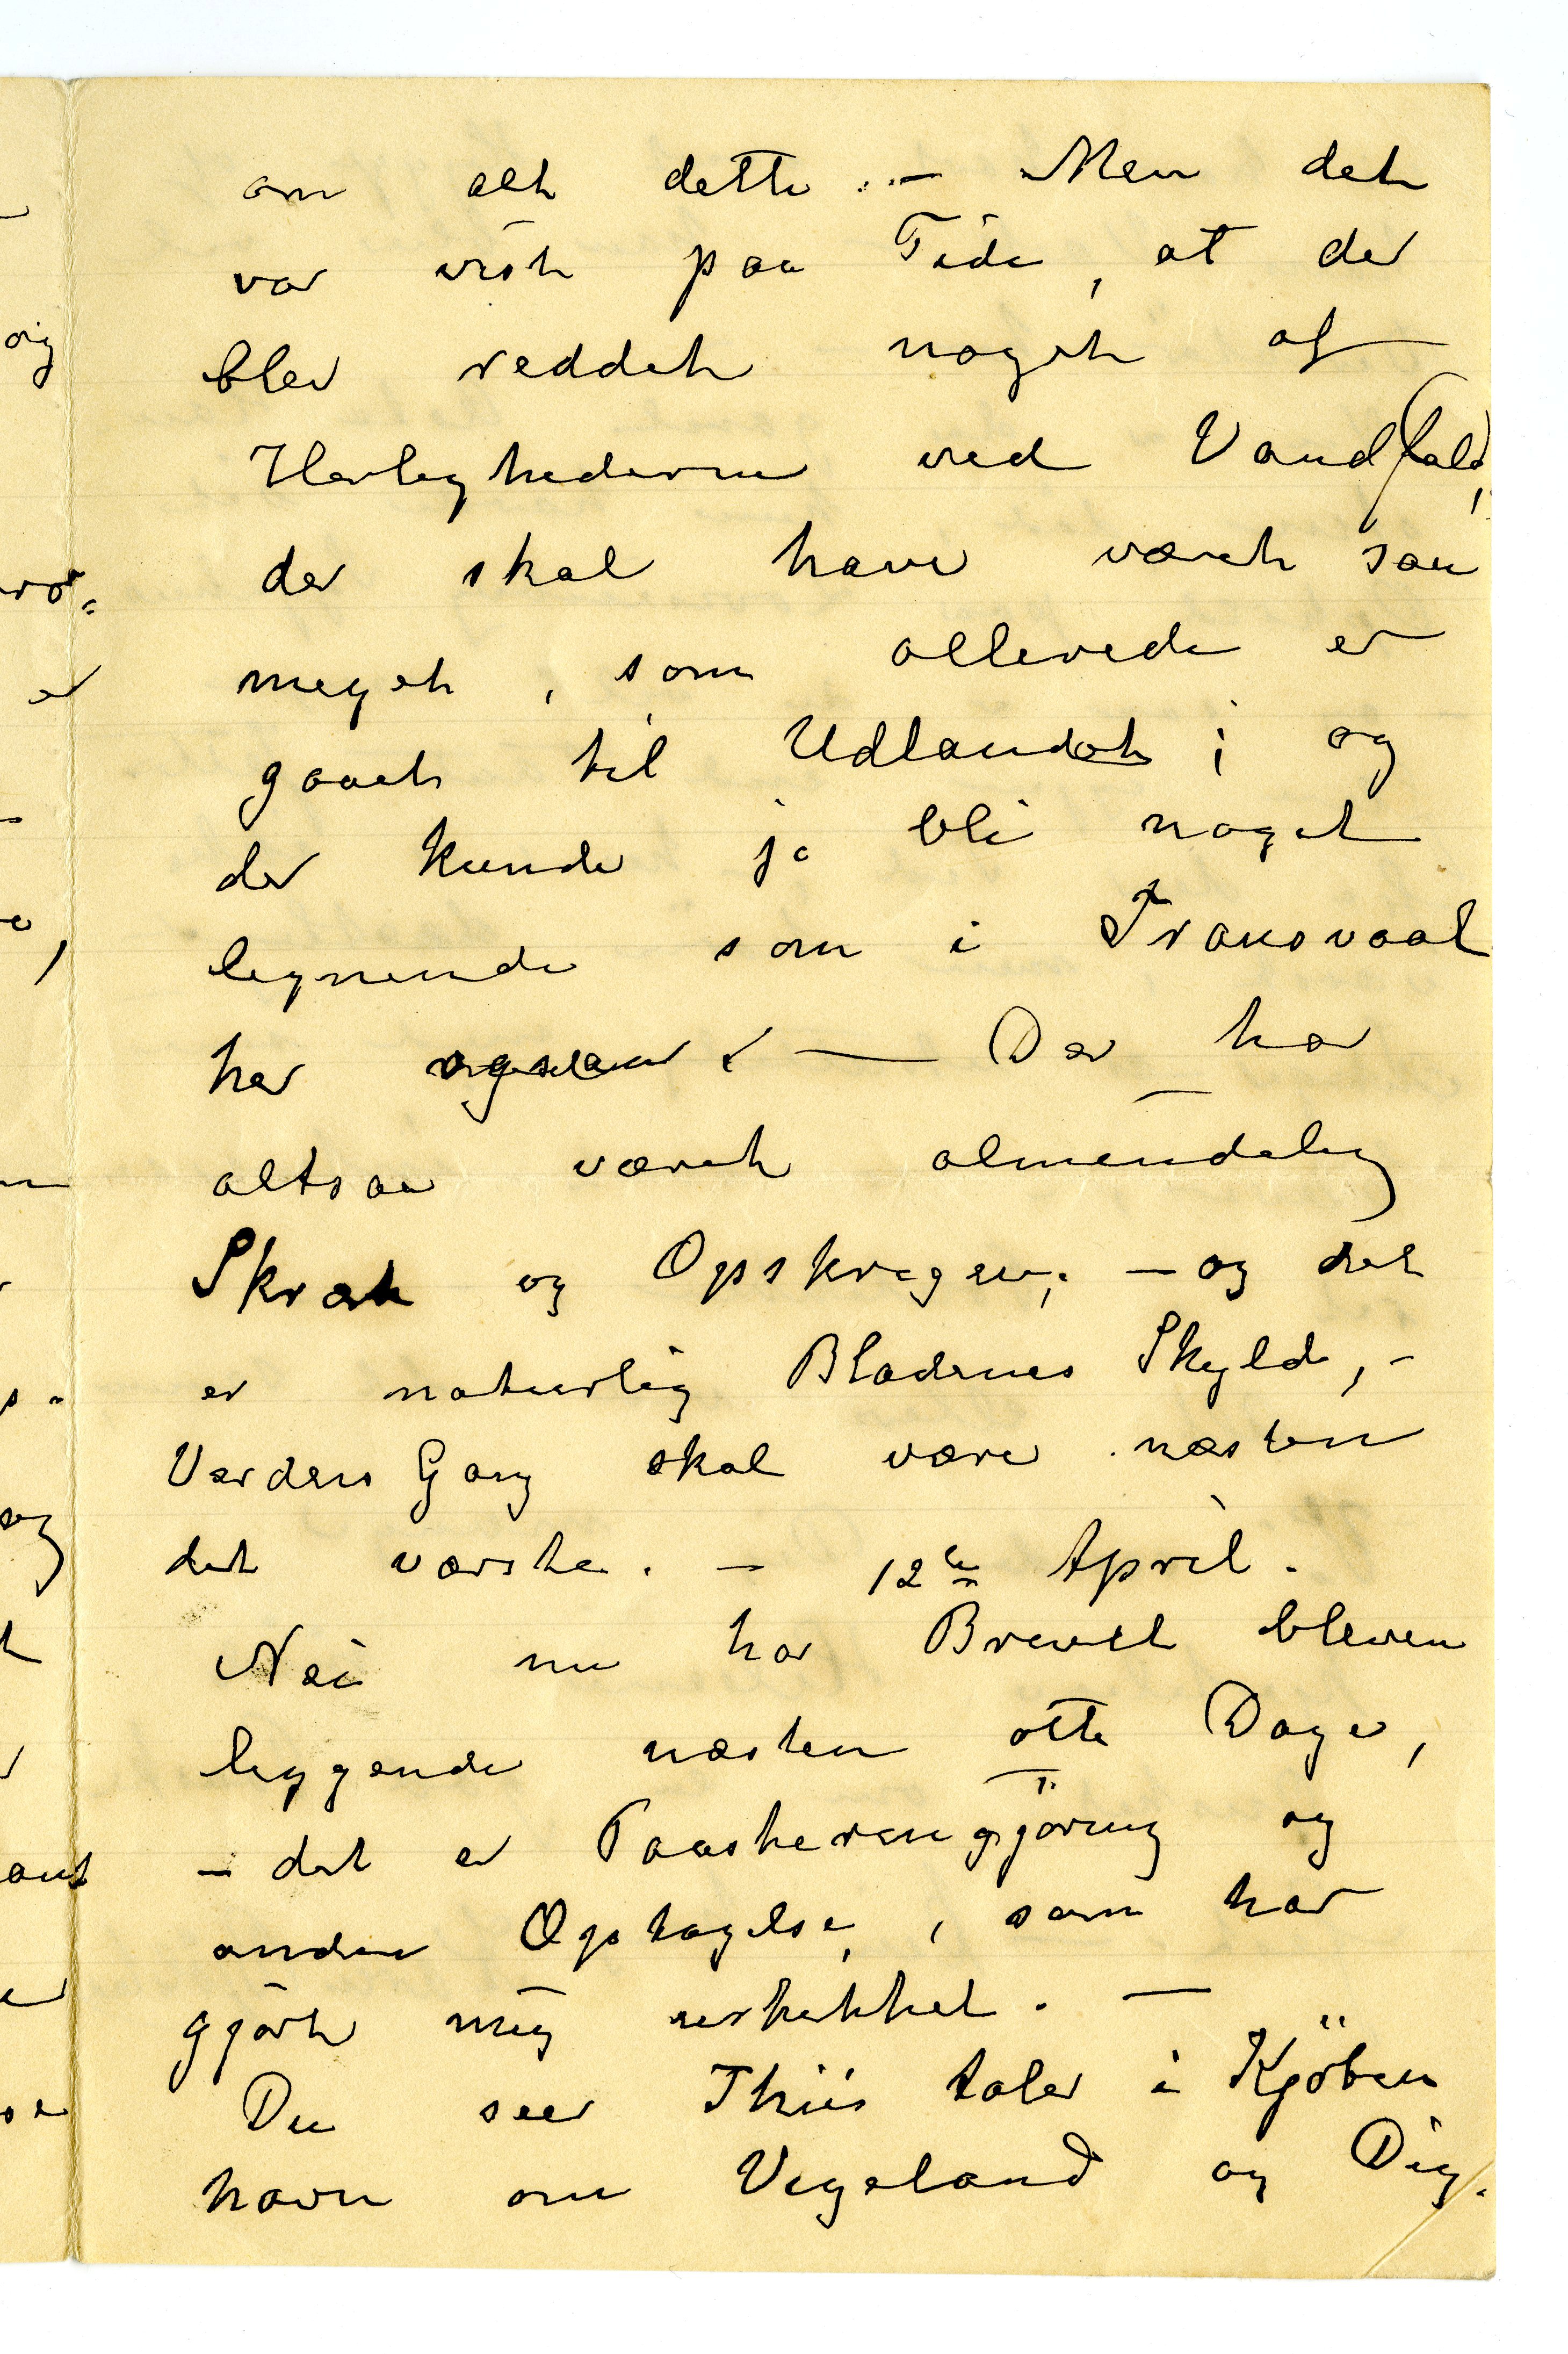 om alt dette. – Men det
var vist paa Tide, at der
blev reddet noget af
Herlighederne ved Vandfald,
der skal have været saa
meget, som allerede er
gaaet til Udlandet; og
der kunde jo bli noget
lignende som i Transvaal
her ogsaa. — Der har
altsaa været almindelig
Skræk og Opskrigen; – og det
er naturlig Bladenes Skyld, –
Verdens Gang skal være næsten
det værste. – 12te April.
Nei nu har Brevet bleven
liggende næsten otte Dage,
– det er Paaskerengjöring og
anden Optagelse, som har
gjört mig  . —
Du seer Thiis taler i Kjöben
havn om Vigeland og Dig.